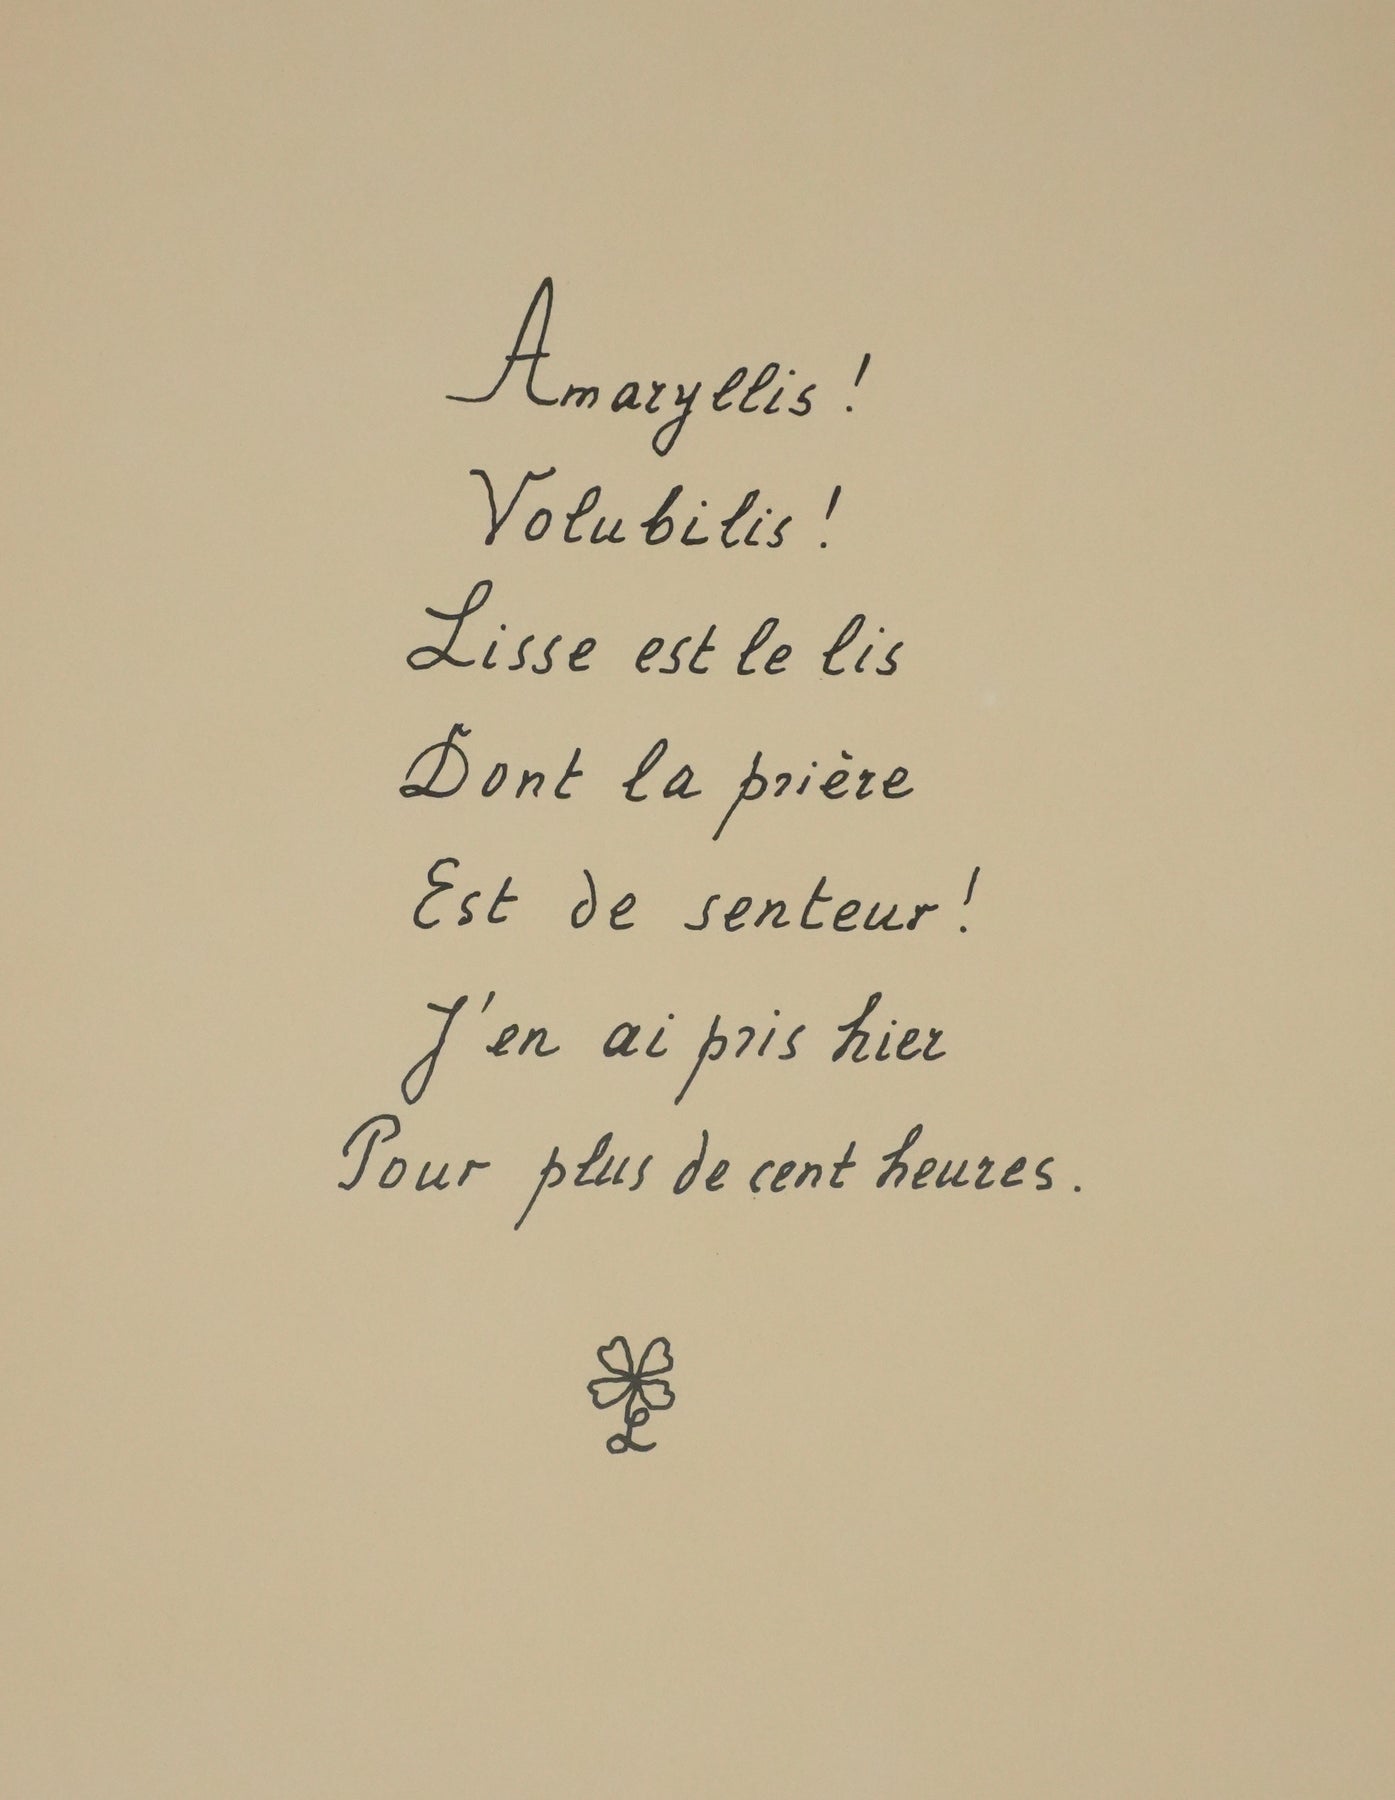 Amaryllis !
Volubilis !
Lisse est le lis
Dont la prière
Est de senteur !
J'en ai pris hier
Pour plus de cent heures.
L